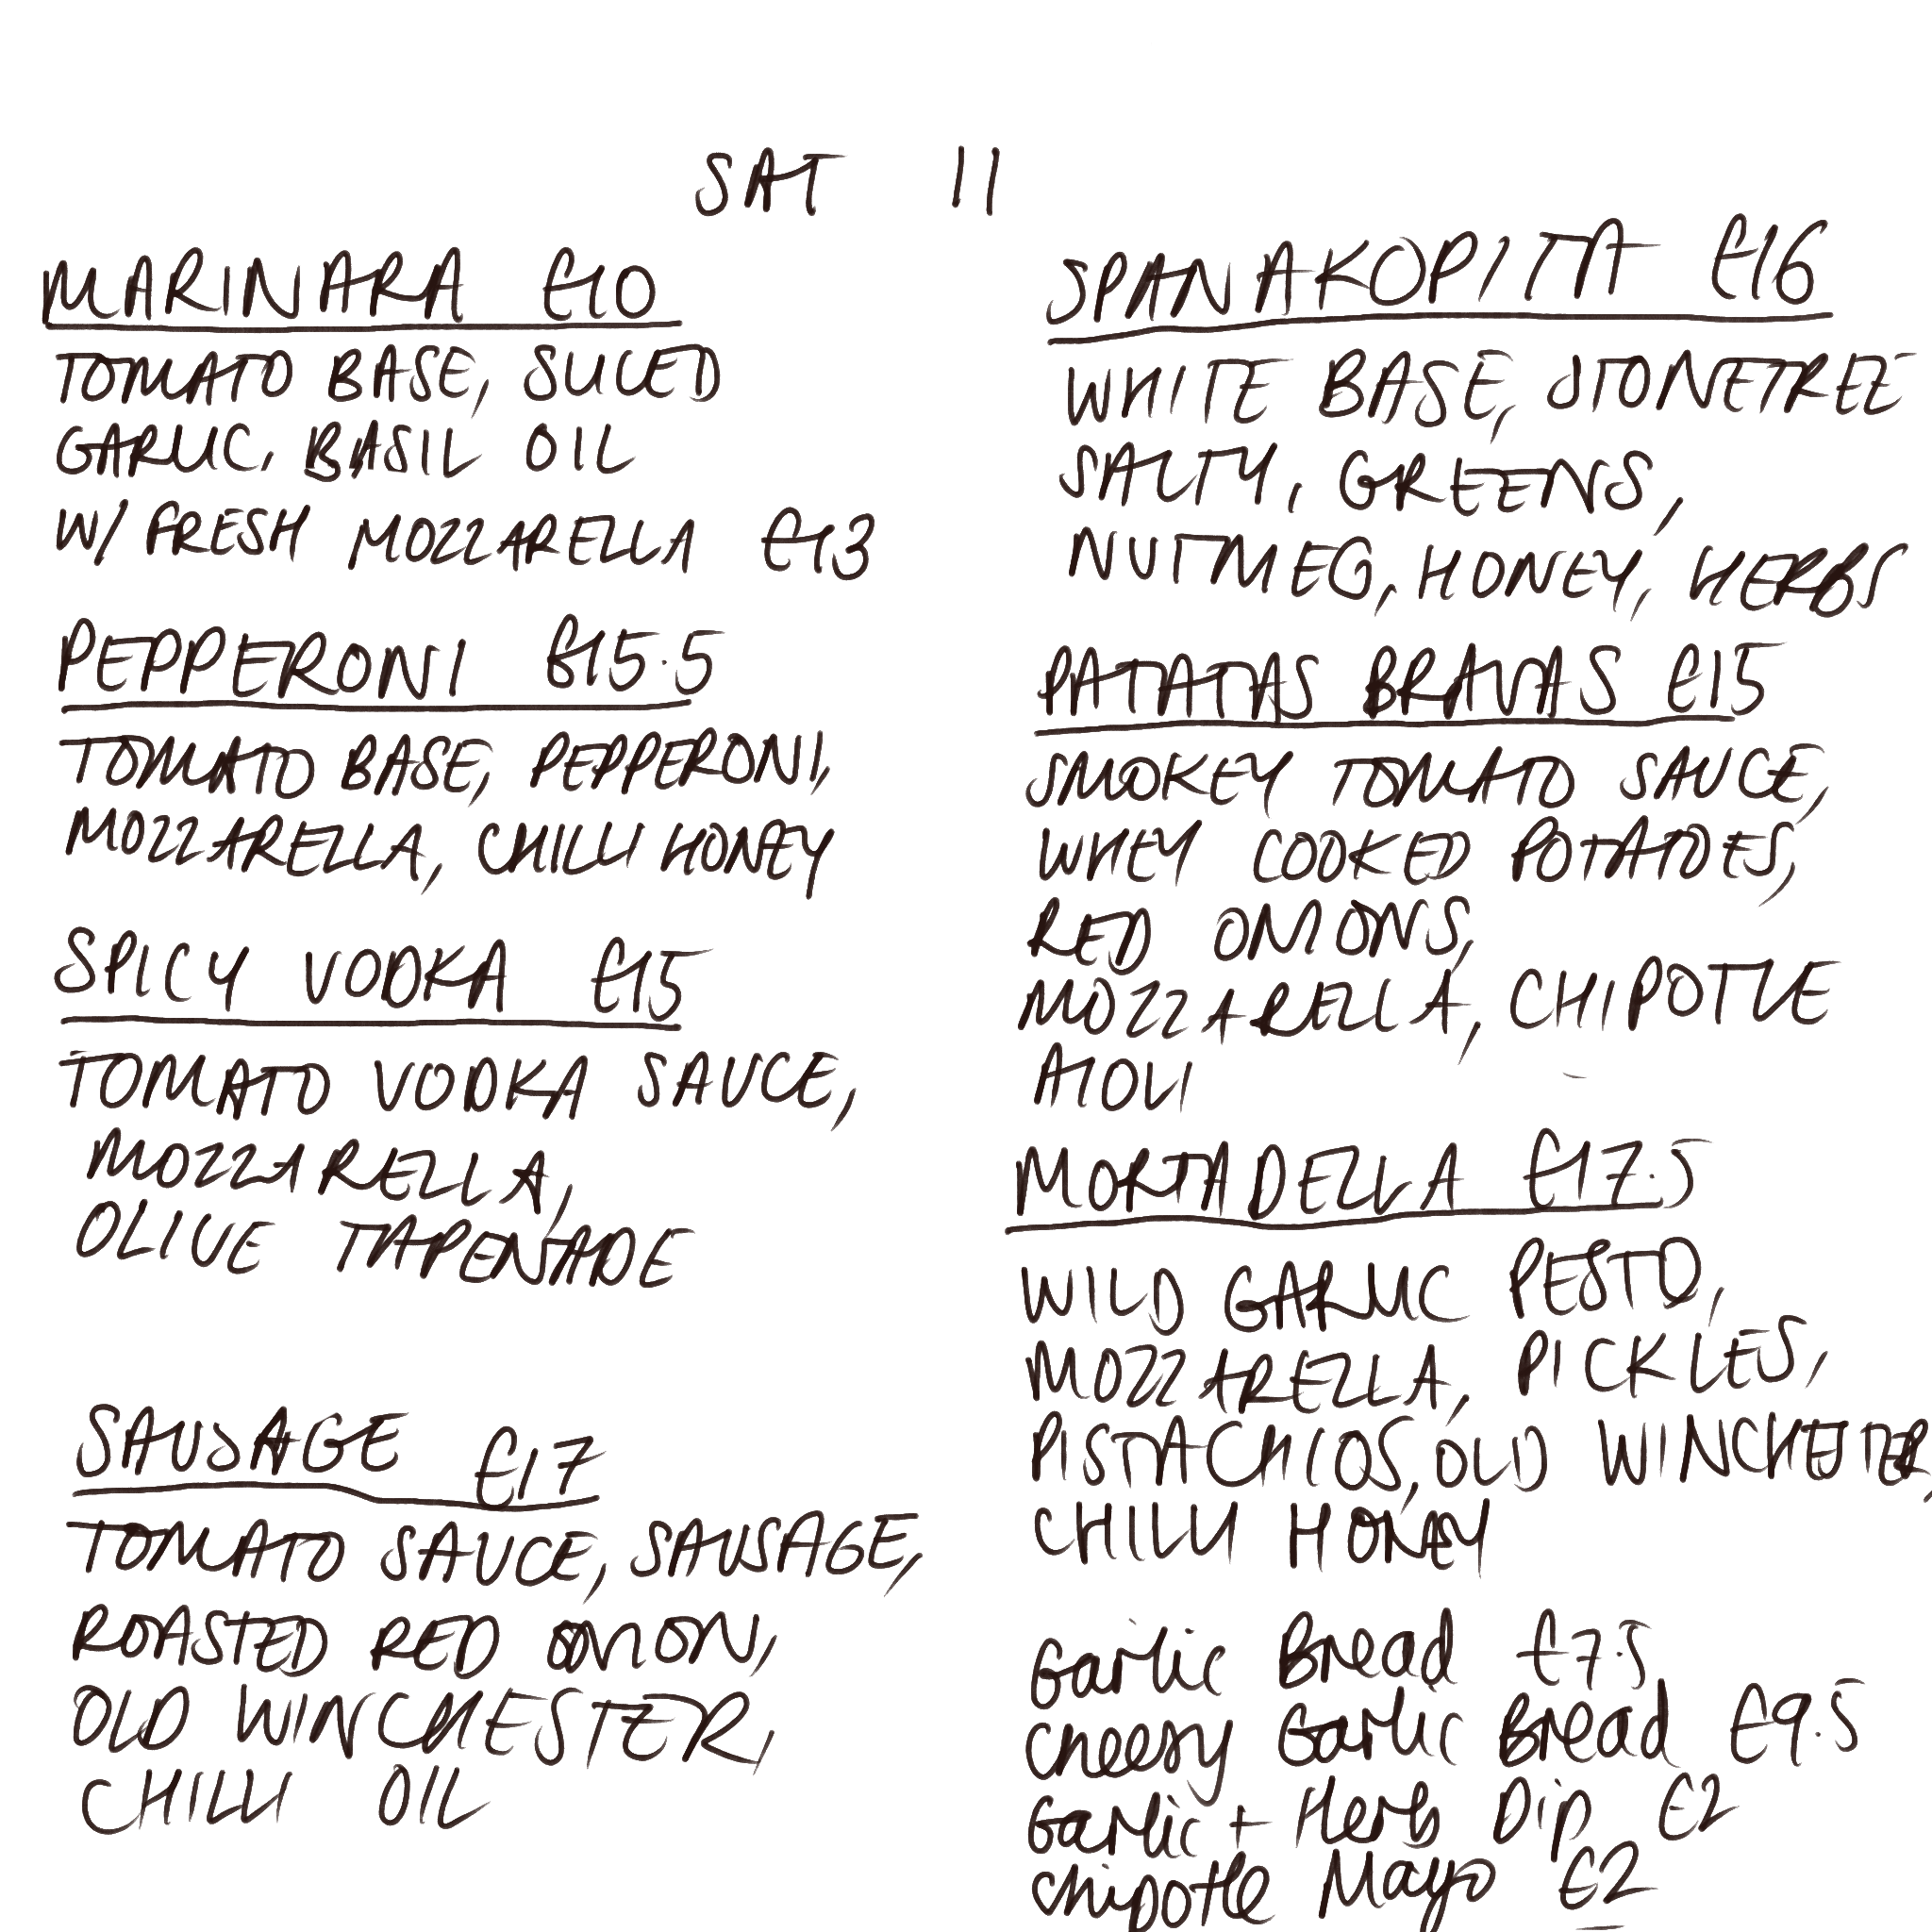 SAT 11
MARINARA £10
TOMATO BASE, SLICED
GARLIC, BASIL OIL
W/ FRESH MOZZARELLA £13
PEPPERONI £15.5
TOMATO BASE, PEPPERONI,
MOZZARELLA, CHILLI HONEY
SPICY VODKA £15
TOMATO VODKA SAUCE,
MOZZARELLA,
OLIVE TAPENADE
SAUSAGE £17
TOMATO SAUCE, SAUSAGE,
ROASTED RED ONION,
OLD WINCHESTER,
CHILLI OIL
SPANAKOPITA £16
WHITE BASE, STONETREE
SALTY, GREENS,
NUTMEG, HONEY, HERBS
PATATAS BRAVAS £15
SMOKEY TOMATO SAUCE,
WHEY COOKED POTATOES,
RED ONIONS,
MOZZARELLA, CHIPOTLE
AIOLI
MORTADELLA £17.5
WILD GARLIC PESTO,
MOZZARELLA, PICKLES,
PISTACHIOS, OLD WINCHESTER,
CHILLI HONEY
Garlic Bread £7.5
Cheesy Garlic Bread £9.5
Garlic + Herb Dip £2
Chipotle Mayo £2